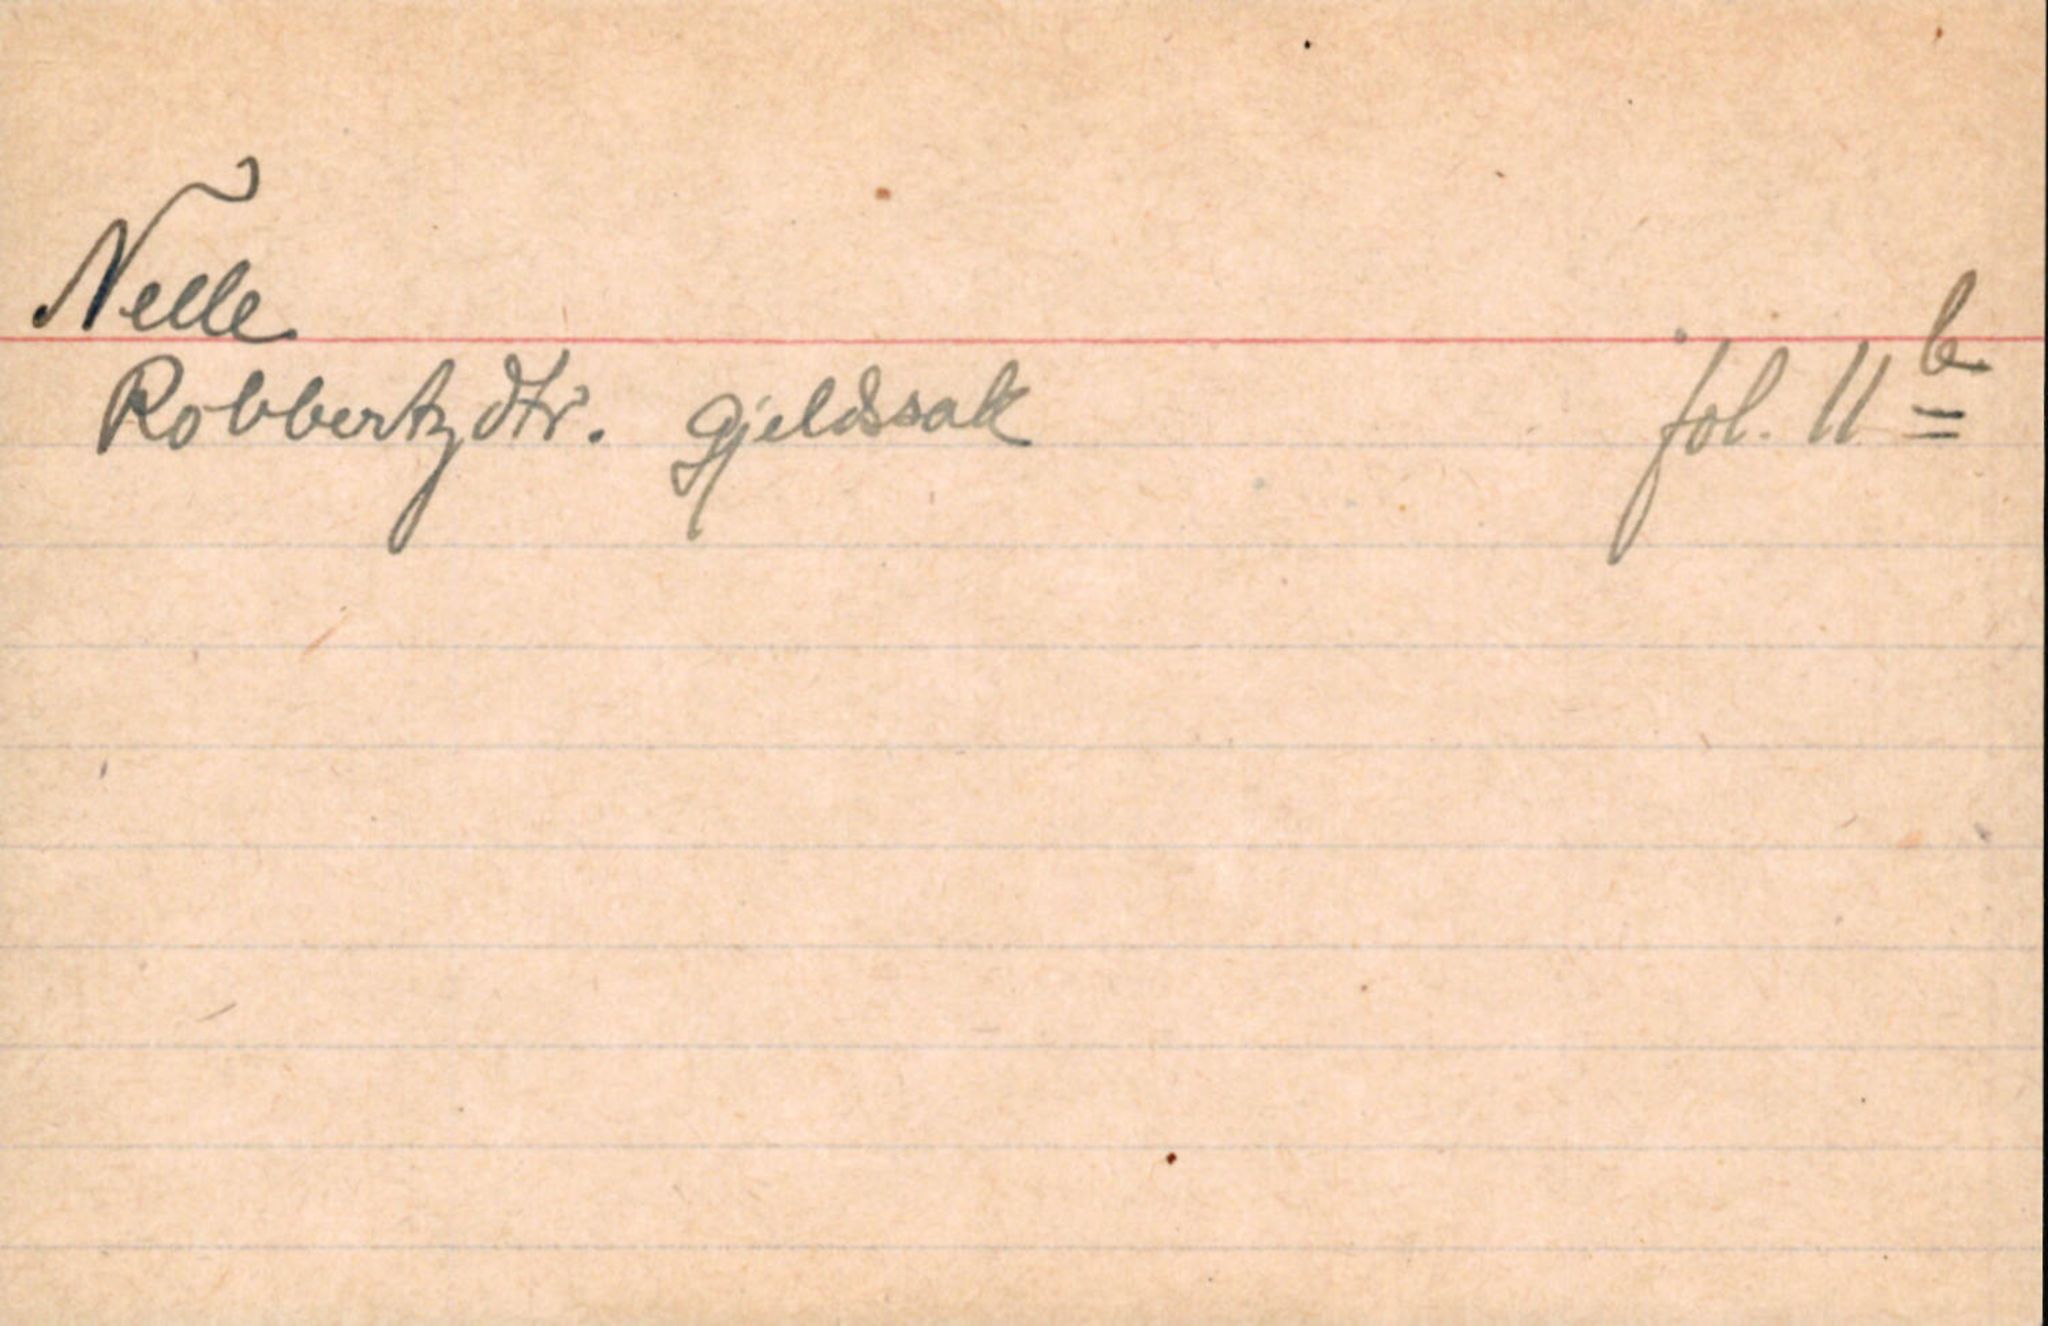 Nelle
Robbertzdtr. gjeldssak fol. 11 b